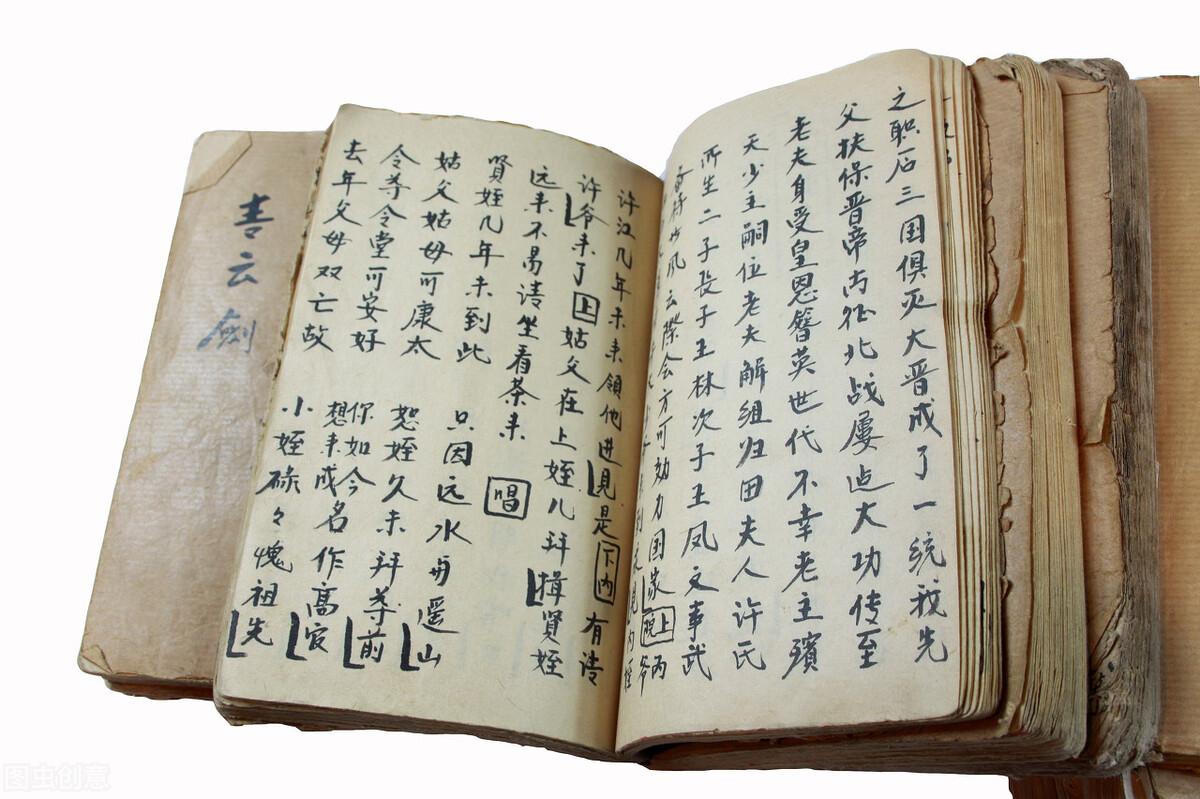 之职后三国俱灭大晋成了一统我先
父扶保晋帝南征北战屡迠大功传至
老夫身受皇恩簪英世代不幸老主殡
天少主嗣位老夫解组归田夫人许氏
所生二子長子王林次子王凤文事武
风云際会方可効力国家上
许江几年未来領他进見是下内有请
许爷来了上姑父在上姪儿拜揖贤姪
远来不易请坐看茶来
贤姪几年未到此 唱
姑父姑母可康太 只因远水与遥山
令尊令堂可安好 恕姪久未拜尊前
去年父母双亡故 你如今想来成名作高官
小姪碌々愧祖先
青云劍
图虫创意